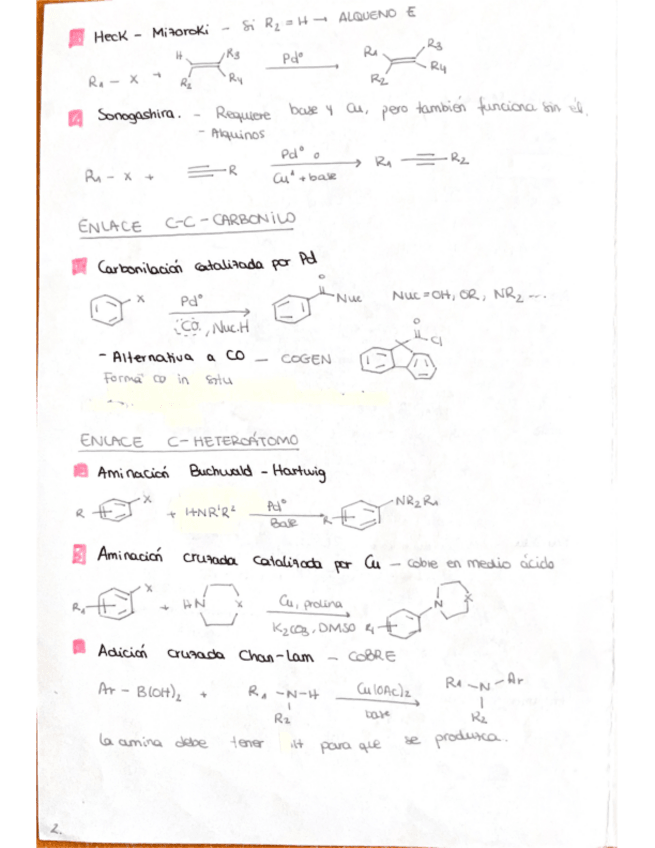 Heck - Mizoroki - Si R2 = H → ALQUENO E
R1 - X + H R3 R2 R4 Pd° R1 R3 R2 R4
Sonogashira. - Requiere base y Cu, pero también funciona sin él.
- Alquinos
R1 - X + R Pd° o Cu + base R1 R2
ENLACE C-C-CARBONILO
Carbonilación catalizada por Pd
X Pd° CO, Nuc.H O Nuc Nuc = OH, OR, NR2 ...
- Alternativa a CO - COGEN O Cl
Forma CO in situ
ENLACE C-HETEROÁTOMO
Aminación Buchwald - Hartwig
R X + HNR1R2 Pd° Base R NR2R1
Aminación cruzada catalizada por Cu - cobre en medio ácido
R1 X + HN X Cu, prolina K2CO3, DMSO R1 N X
Adición cruzada Chan-Lam - COBRE
Ar - B(OH)2 + R1 - N - H R2 Cu(OAc)2 base R1 - N - Ar R2
la amina debe tener H para que se produzca.
2.